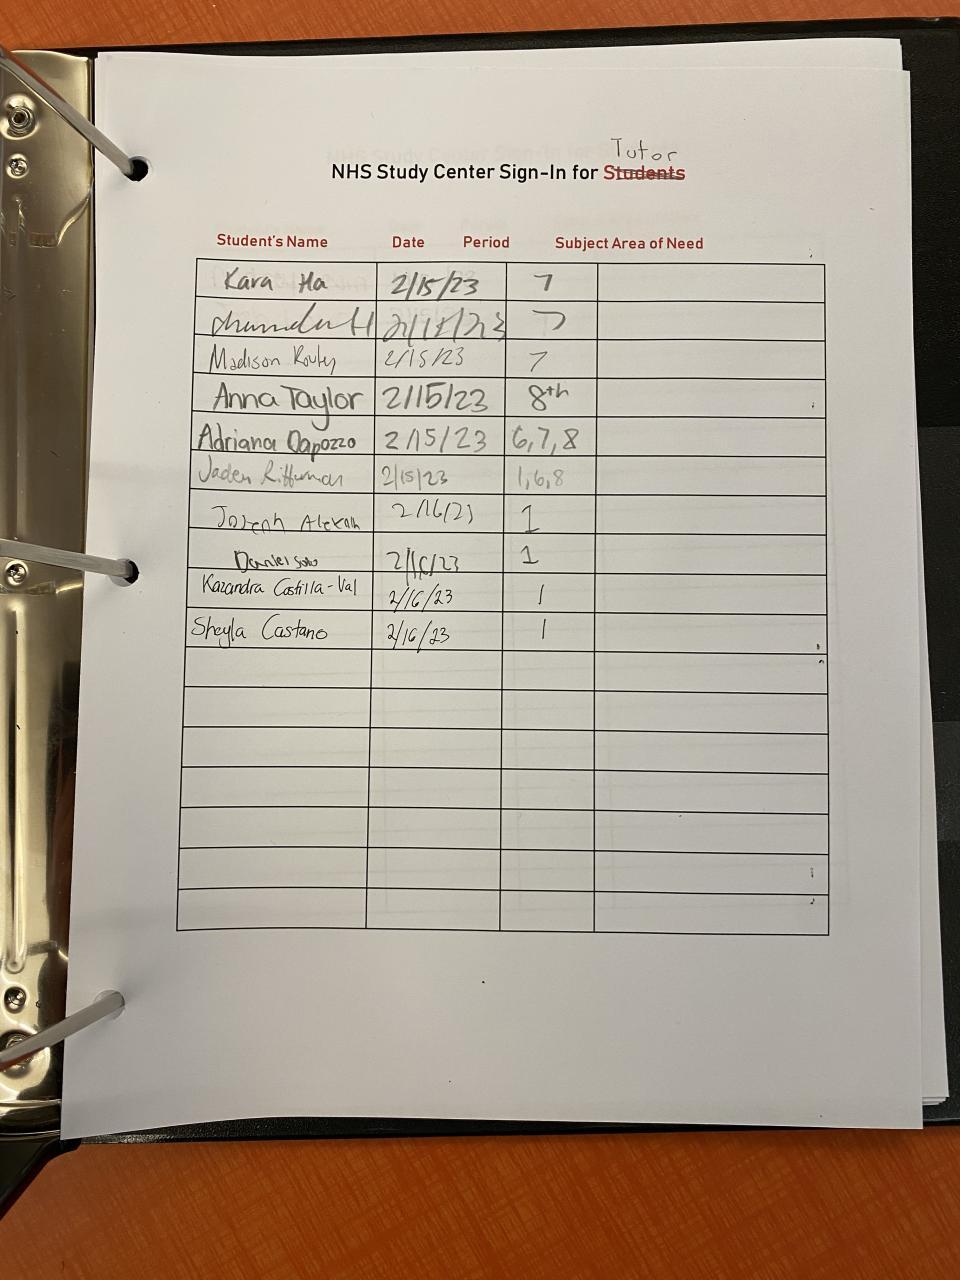 Tutor
NHS Study Center Sign-In for Students
Student's Name Date Period Subject Area of Need
Kara Ha 2/15/23 7
2/15/23 7
Madison 2/15/23 7
Anna Taylor 2/15/23 8th
Adriana Dapozzo 2/15/23 6,7,8
Jaden 2/15/23 1,6,8
Joseph 2/16/23 1
Daniel Soto 2/16/23 1
Kazandra Castilla-Val 2/16/23 1
Sheyla Castano 2/16/23 1